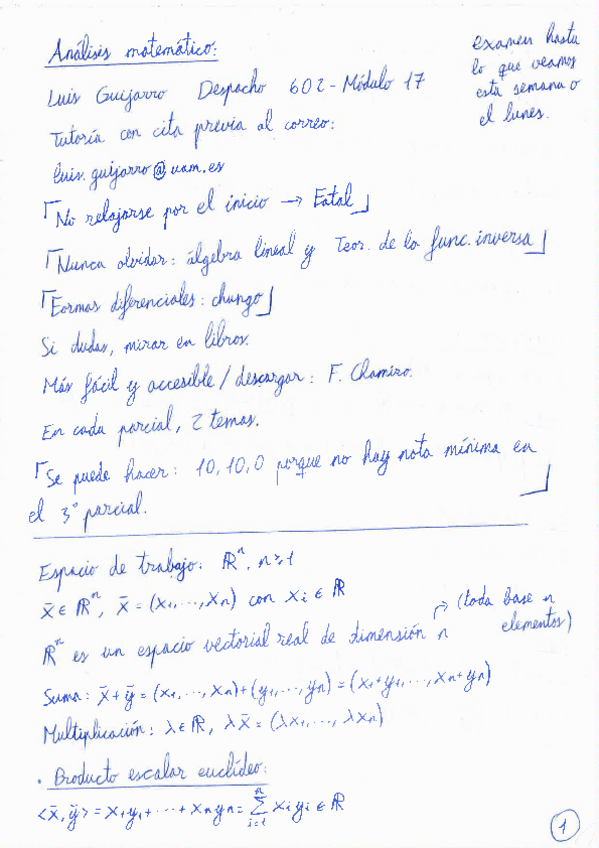 Análisis matemático:
examen hasta
lo que veamos
esta semana o
el lunes.
Luis Guijarro Despacho 602 - Módulo 17
Tutoría con cita previa al correo:
luis.guijarro@uam.es
「No relajarse por el inicio → Fatal」
「Nunca olvidar: álgebra lineal y Teor. de la func. inversa」
「Formas diferenciales: chungo」
Si dudas, mirar en libros.
Más fácil y accesible / descargar: F. Chamizo.
En cada parcial, 2 temas.
「Se puede hacer: 10, 10, 0 porque no hay nota mínima en
el 3º parcial.」
Espacio de trabajo: ℝⁿ, n ≥ 1
x̄ ∈ ℝⁿ, x̄ = (x₁, ..., xₙ) con xᵢ ∈ ℝ
ℝⁿ es un espacio vectorial real de dimensión n → (toda base n
elementos)
Suma: x̄ + ȳ = (x₁, ..., xₙ) + (y₁, ..., yₙ) = (x₁+y₁, ..., xₙ+yₙ)
Multiplicación: λ ∈ ℝ, λx̄ = (λx₁, ..., λxₙ)
· Producto escalar euclídeo:
<x̄, ȳ> = x₁y₁ + ··· + xₙyₙ = ∑ᵢ₌₁ⁿ xᵢyᵢ ∈ ℝ
1